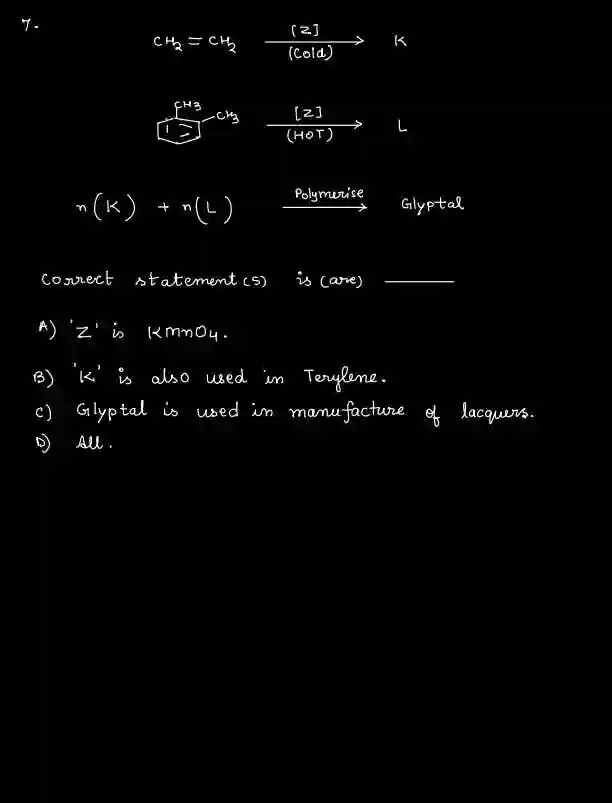 7.
CH2 = CH2 [Z] (Cold) K
CH3 CH3 [Z] (HOT) L
n(K) + n(L) Polymerise Glyptal
Correct statement(s) is (are) ______
A) 'Z' is KMnO4.
B) 'K' is also used in Terylene.
C) Glyptal is used in manufacture of lacquers.
D) All.